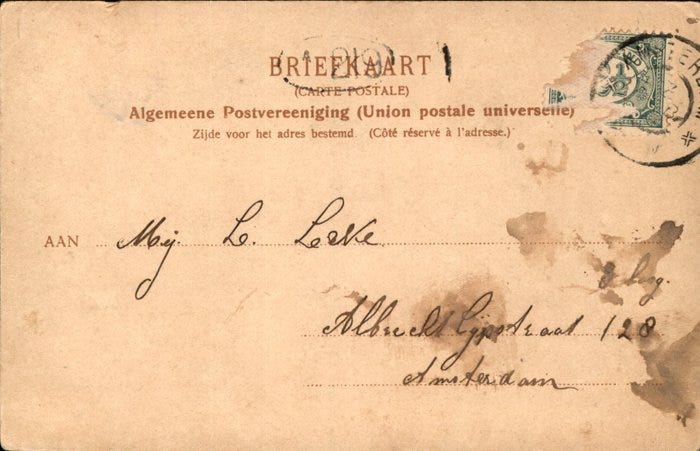 BRIEFKAART
(CARTE POSTALE)
Algemeene Postvereeniging (Union postale universelle)
Zijde voor het adres bestemd. (Côté réservé à l'adresse.)
AAN Mej. L. Leske
Albrecht Lijpstraat 128
Amsterdam